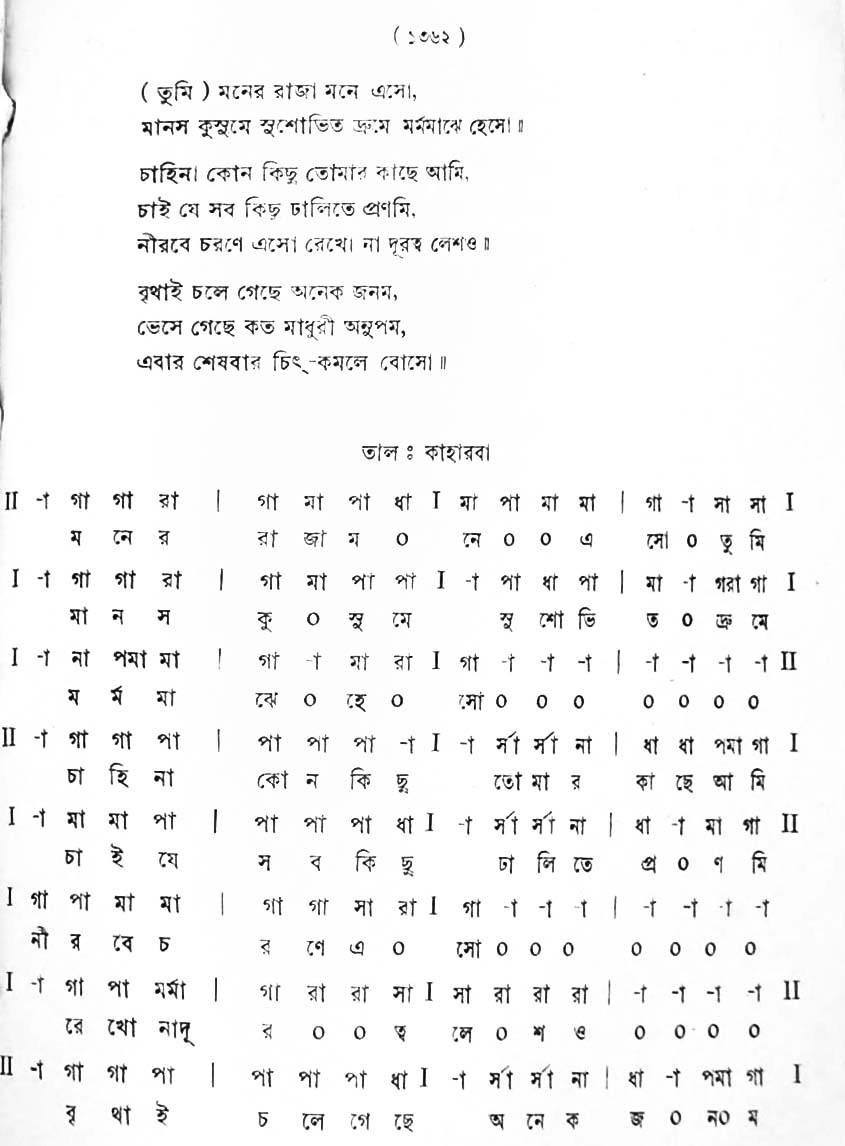 ( ১৩৬২ )
( তুমি ) মনের রাজা মনে এসো,
মানস কুসুমে সুশোভিত দ্রুমে মর্মমাঝে হেসো॥
চাহিনা কোন কিছু তোমার কাছে আমি,
চাই যে সব কিছু ঢালিতে প্রণমি,
নীরবে চরণে এসো রেখো না দূরত্ব লেশও॥
বৃথাই চলে গেছে অনেক জনম,
ভেসে গেছে কত মাধুরী অনুপম,
এবার শেষবার চিৎ-কমলে বোসো॥
তাল ঃ কাহারবা
II -া গা গা রা | গা মা পা ধা I মা পা মা মা | গা -া সা সা I
ম নে র রা জা ম ০ নে ০ ০ এ সো ০ তু মি
I -া গা গা রা | গা মা পা পা I -া পা ধা পা | মা -া গরা গা I
মা ন স কু ০ সু মে সু শো ভি ত ০ দ্রু মে
I -া না পমা মা | গা -া মা রা I গা -া -া -া | -া -া -া -া II
ম র্ম মা ঝে ০ হে ০ সো ০ ০ ০ ০ ০ ০ ০
II -া গা গা পা | পা পা পা -া I -া র্সা র্সা না | ধা ধা পমা গা I
চা হি না কো ন কি ছু তো মা র কা ছে আ মি
I -া মা মা পা | পা পা পা ধা I -া র্সা র্সা না | ধা -া মা গা II
চা ই যে স ব কি ছু ঢা লি তে প্র ০ ণ মি
I গা পা মা মা | গা গা সা রা I গা -া -া -া | -া -া -া -া
নী র বে চ র ণে এ ০ সো ০ ০ ০ ০ ০ ০ ০
I -া গা পা মর্মা | গা রা রা সা I সা রা রা রা | -া -া -া -া II
রে খো নাদূ র ০ ০ ত্ব লে ০ শ ও ০ ০ ০ ০
II -া গা গা পা | পা পা পা ধা I -া র্সা র্সা না | ধা -া পমা গা I
বৃ থা ই চ লে গে ছে অ নে ক জ ০ ন০ ম